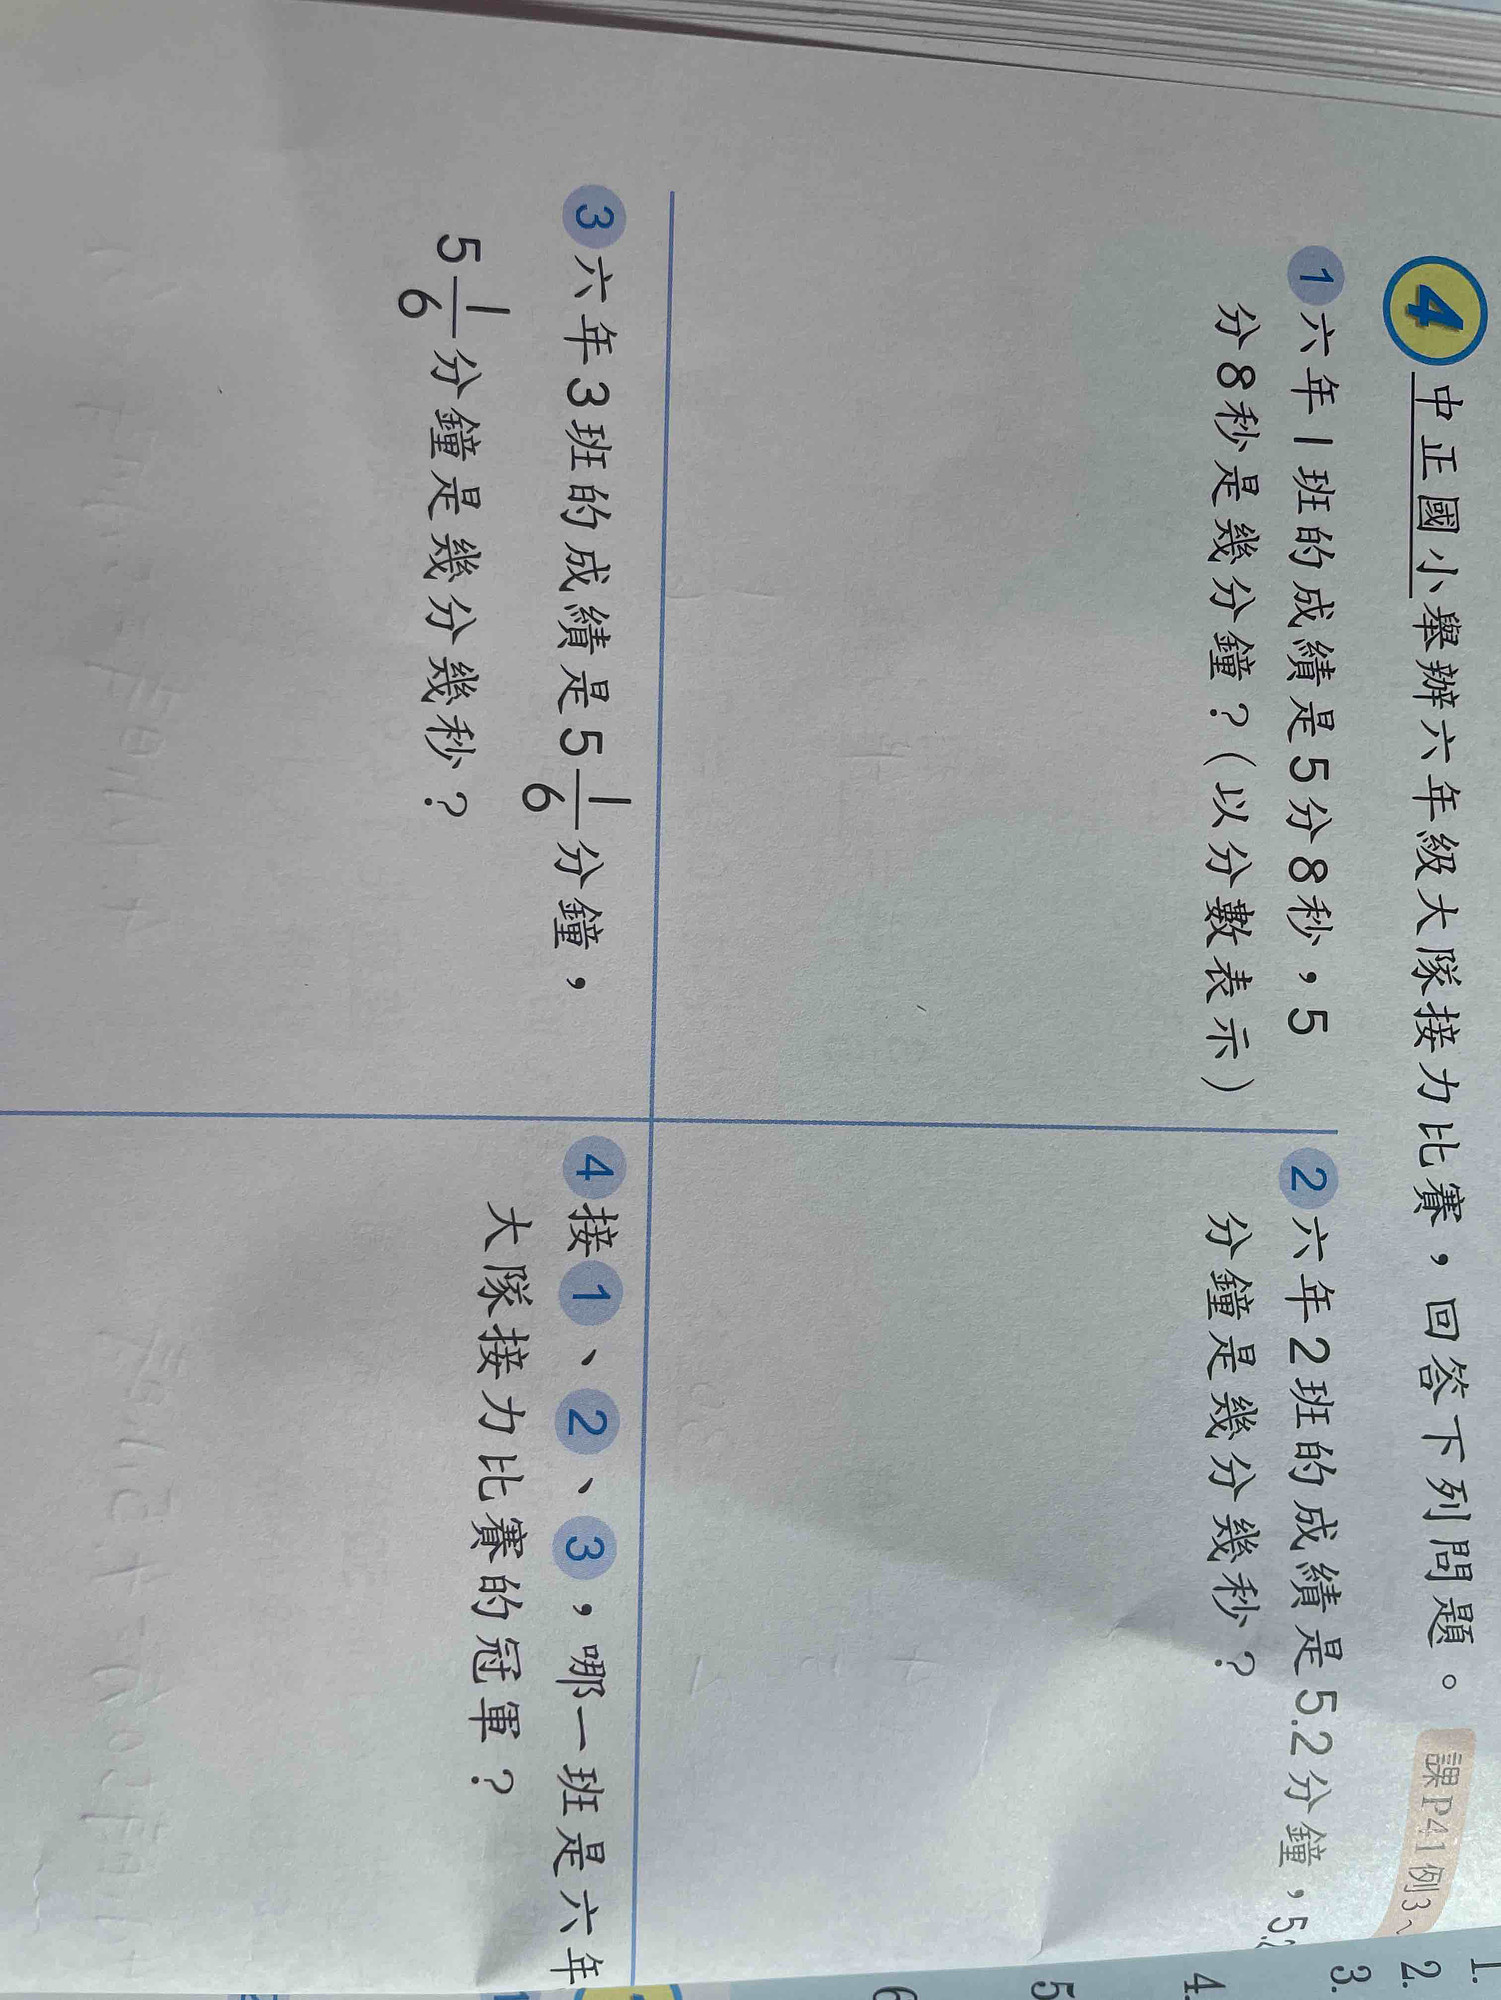 4 中正國小舉辦六年級大隊接力比賽，回答下列問題。 課P41例3、
1 六年1班的成績是5分8秒，5
分8秒是幾分鐘？(以分數表示)
2 六年2班的成績是5.2分鐘，5.2
分鐘是幾分幾秒？
3 六年3班的成績是5 1/6 分鐘，
5 1/6 分鐘是幾分幾秒？
4 接1、2、3，哪一班是六年
大隊接力比賽的冠軍？
1.
2.
3.
4.
5
6